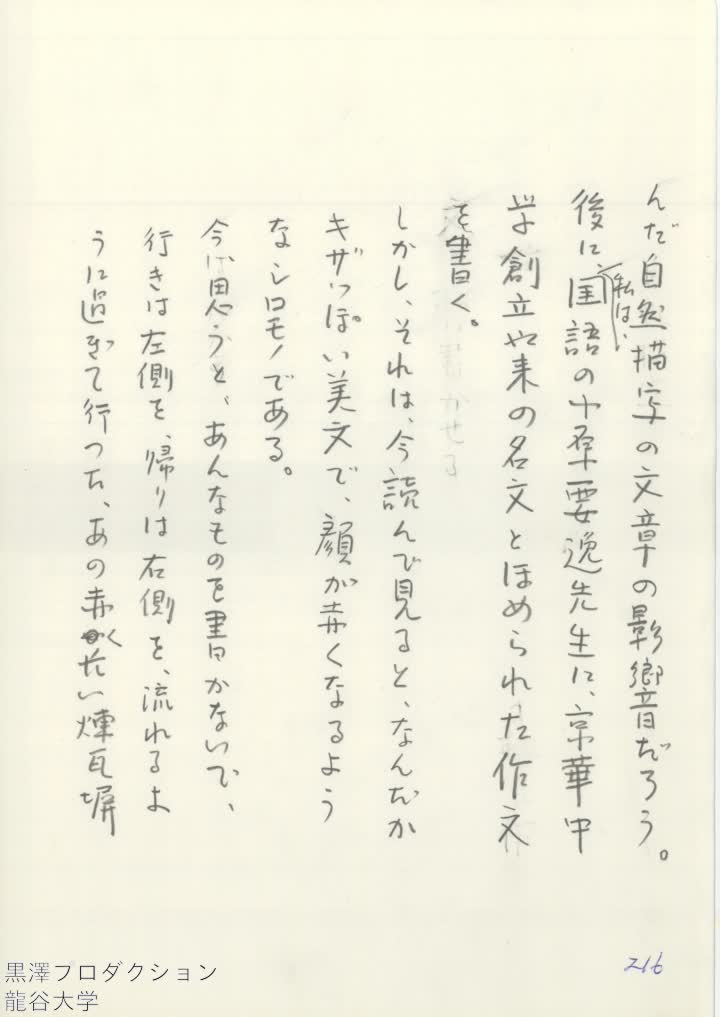 んだ自然描写の文章の影響だろう。
後に、私は、国語の小原要逸先生に、京華中
学創立以来の名文とほめられた作文
を書く。
しかし、それは、今読んで見ると、なんだか
キザっぽい美文で、顔が赤くなるよう
なシロモノである。
今思うと、あんなものを書かないで、
行きは左側を、帰りは右側を、流れるよ
うに過ぎて行った、あの赤く長い煉瓦塀
216
黒澤プロダクション
龍谷大学